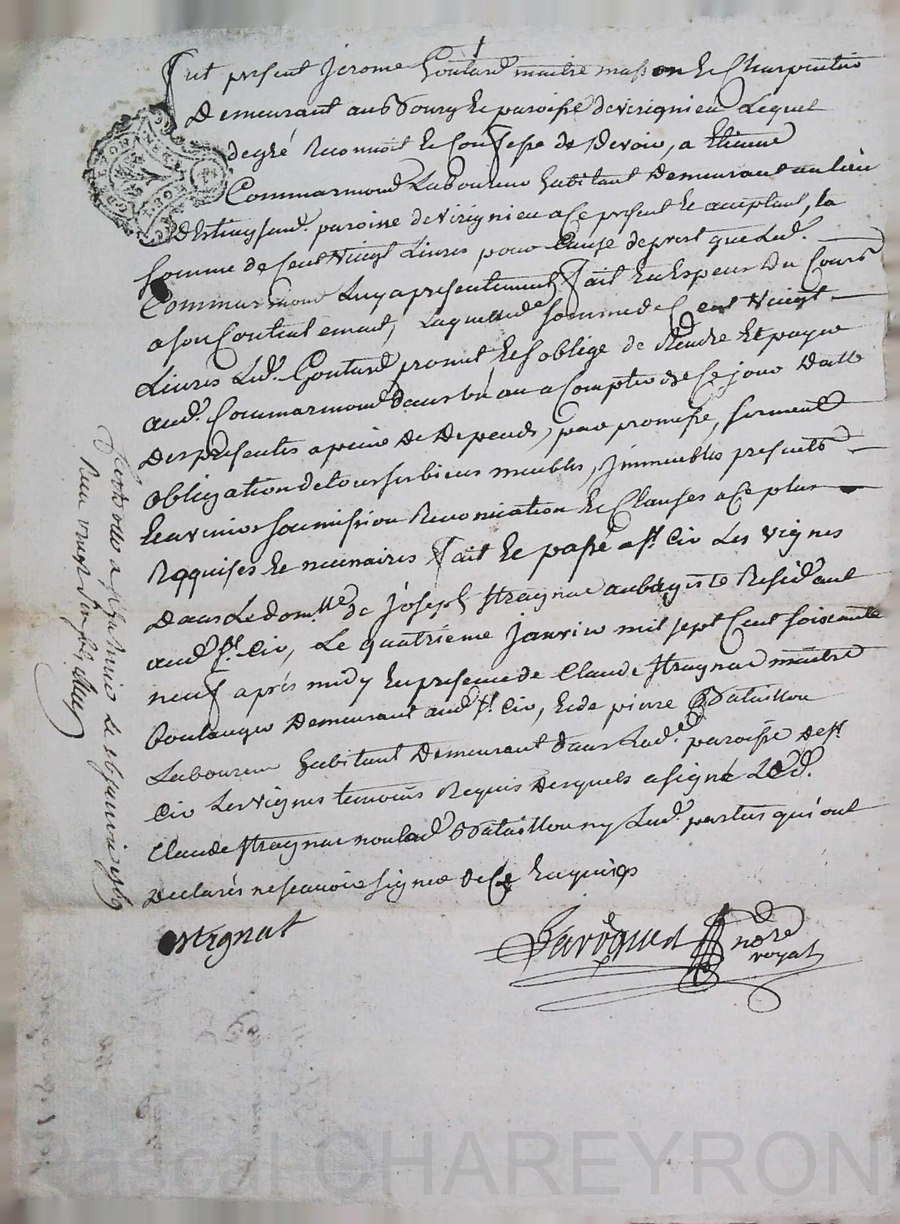 Fut present Jerome Goutard maitre masson et Charpentier
Demeurant au Bourg et paroisse de verignieu Lequel
de gré Reconnoit et Confesse de Devoir, a Etienne
Commarmond Laboureur habitant Demeurant au lieu
paroisse de virignieu a ce present et aceptant, la
somme de Cent Vingt Livres pour Cause de prest que Lud.
Commarmond Luy a presentement fait En Especes Du Cours
a son Contentement, Laquelle de somme de Cent Vingt
Livres Led. Goutard promet et s'oblige de Rendre Et payer
aud. Commarmond dans un an a Compter de Ce jour Datte
Des presentes a peine de Depends, par promesse, serment
obligation de tous ses biens meubles, Jmmeubles presents
Et avenir soumission Renonciation Et Clauses a ce plus
Requises Et necessaires fait Et passé a st. Cir Les vignes
Dans Le dom.lle de Joseph Stragnat aubergiste Residant
aud st. Cir, Le quatrieme Janvier mil sept Cent soixante
neuf après midy En presence de Claude Stragnat maitre
Boulanger Demeurant aud st. Cir, Et de pierre Bataillou
Laboureur habitant Demeurant dans Lad. paroisse de st
Cir Les vignes temoins Requis Desquels a signé Led.
Claude Stragnat non led Bataillou ny Lud. parties qui ont
Declarés ne scavoir signer de Ce Enquis
Stragnat
nore
royal
Pascal CHAREYRON